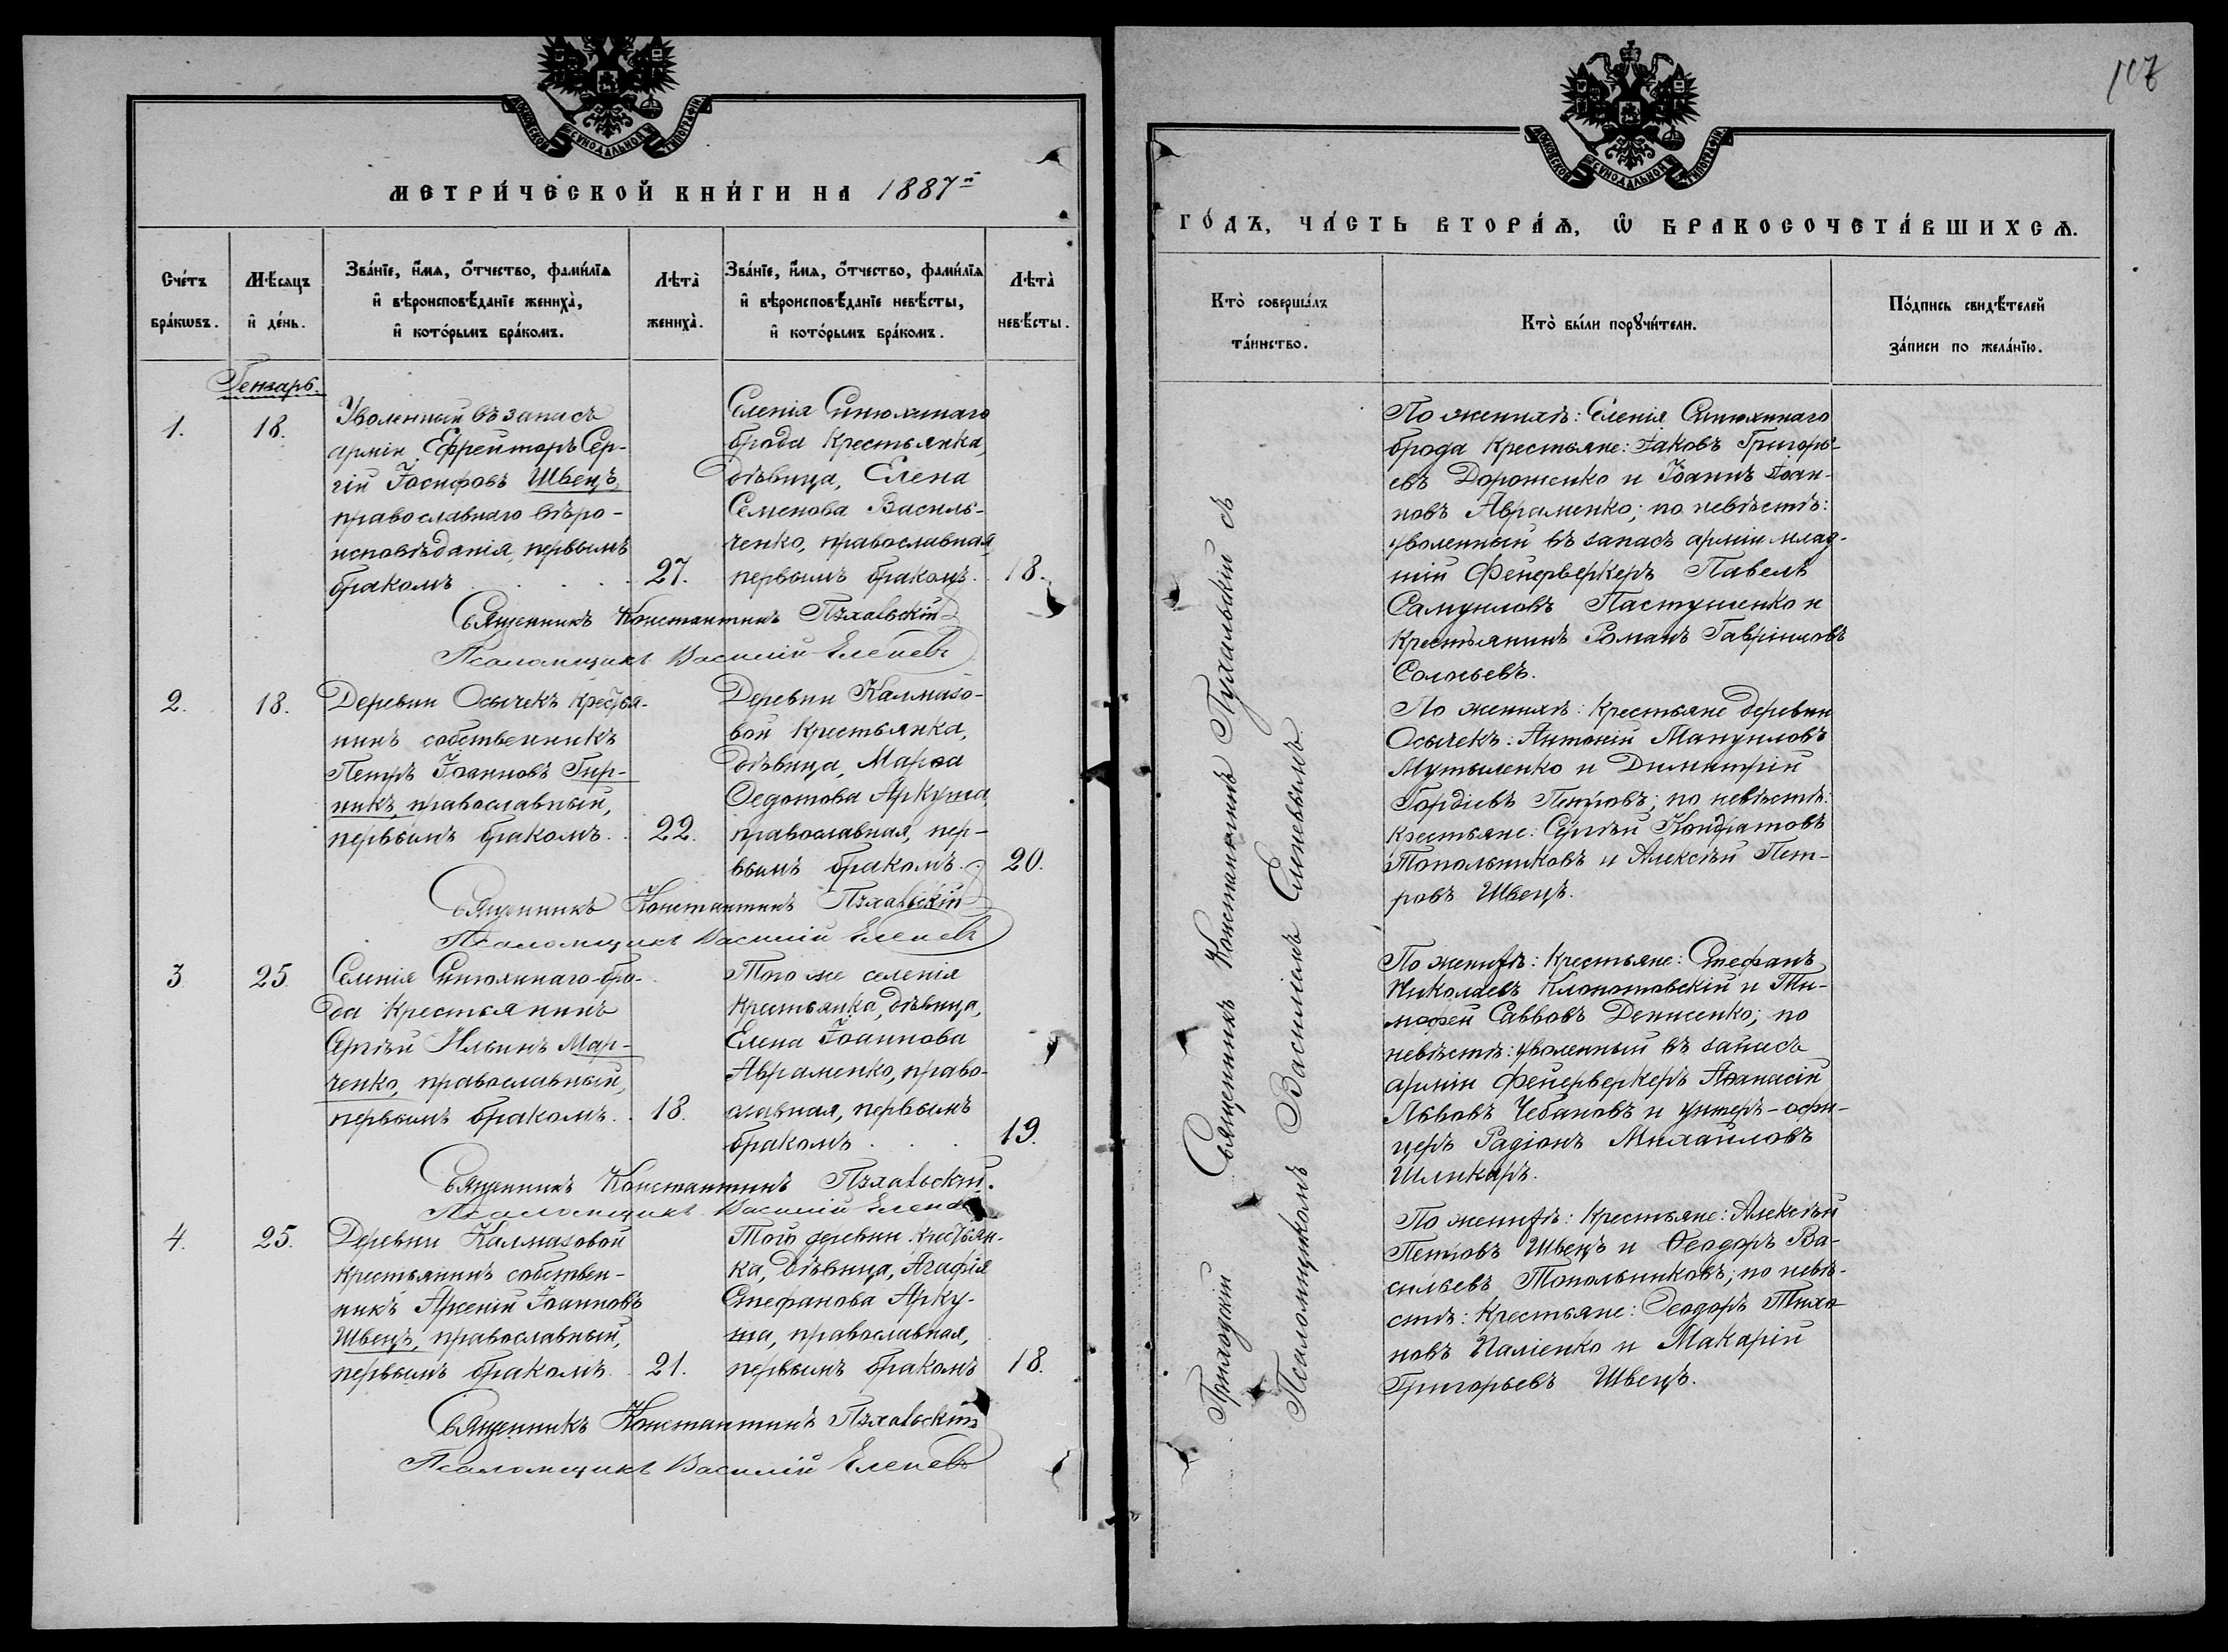 МОСКОВСКОЙ СѴНОДАЛЬНОЙ ТИПОГРАФІИ
МЕТРИ́ЧЕСКОЙ КНИ́ГИ НА 1887й
Сче́тъ бра́кѡвъ.
Мѣ́сяцъ и҆ де́нь.
Зва́нїе, и҆́мѧ, ѻ҆́тчество, фами́лїѧ
и҆ вѣроисповѣ́данїе жениха̀,
и҆ кото́рымъ бра́комъ.
Лѣта̀ жениха̀.
Зва́нїе, и҆́мѧ, ѻ҆́тчество, фами́лїѧ
и҆ вѣроисповѣ́данїе невѣ́сты,
и҆ кото́рымъ бра́комъ.
Лѣта̀ невѣ́сты.
Генварь.
1.
18.
Уволенный въ запасъ
арміи Ефрейторъ Сер-
гій Іосифовъ Швецъ,
православнаго вѣро-
исповѣданія, первымъ
бракомъ
27.
Селенія Синюхинаго
брода Крестьянка,
дѣвица, Елена
Семенова Василь-
ченко, православная,
первымъ бракомъ.
18.
Священникъ Константинъ Пухальскій
Псаломщикъ Василій Еленевъ
2.
18.
Деревни Осычекъ крестья-
нинъ собственникъ
Петръ Іоанновъ Гир-
никъ, православный,
первымъ бракомъ.
22.
Деревни Калмазо-
вой Крестьянка,
дѣвица, Марѳа
Ѳедотова Аркуша,
православная, пер-
вымъ бракомъ.
20.
Священникъ Константинъ Пухальскій
Псаломщикъ Василій Еленевъ
3
25.
Селенія Синюхинаго-бро-
да Крестьянинъ
Сергѣй Ильинъ Мар-
ченко, православный,
первымъ бракомъ.
18.
Того же селенія
Крестьянка, дѣвица,
Елена Іоаннова
Авраменко, право-
славная, первымъ
бракомъ
19.
Священникъ Константинъ Пухальскій.
Псаломщикъ Василій Еленевъ
4.
25.
Деревни Калмазовой
крестьянинъ собствен-
никъ Арсеній Іоанновъ
Швецъ, православный,
первымъ бракомъ.
21.
Той деревни крестьян-
ка, дѣвица, Агафія
Стефанова Арку-
ша, православная,
первымъ бракомъ
18.
Священникъ Константинъ Пухальскій
Псаломщикъ Василій Еленевъ
МОСКОВСКОЙ СѴНОДАЛЬНОЙ ТИПОГРАФІИ
ГО́ДЪ, ЧА́СТЬ ВТОРА́Ѧ, Ѽ БРАКОСОЧЕТА́ВШИХСѦ.
Кто̀ соверша́лъ
та́инство.
Кто̀ бы́ли порꙋчи́тели.
По́дпись свидѣ́телей
за́писи по жела́нїю.
Приходскій Священникъ Константинъ Пухальскій съ
Псаломщикомъ Василіемъ Еленевымъ.
По женихѣ: Селенія Синюхинаго
брода Крестьяне: Іаковъ Григорь-
евъ Дороженко и Іоаннъ Іоан-
новъ Авраменко; по невѣстѣ:
уволенный въ запасъ арміи млад-
шій Фейерверкеръ Павелъ
Самуиловъ Пастушенко и
Крестьянинъ Романъ Гавріиловъ
Соловьевъ.
По женихѣ: Крестьяне деревни
Осычекъ: Антоній Мануиловъ
Мутыленко и Димитрій
Гордіевъ Петровъ; по невѣстѣ:
крестьяне: Сергѣй Кондратовъ
Топольниковъ и Алексѣй Пет-
ровъ Швецъ.
По женихѣ: Крестьяне: Стефанъ
Николаевъ Клопотовскій и Ти-
моѳей Савовъ Денисенко; по
невѣстѣ: уволенный въ запасъ
арміи фейерверкеръ Аѳанасій
Львовъ Чебановъ и унтеръ-офи-
церъ Радіонъ Михайловъ
Шликарь.
По женихѣ: Крестьяне: Алексѣй
Петровъ Швецъ и Ѳеодоръ Ва-
сильевъ Топольниковъ; по невѣ-
стѣ: Крестьяне: Ѳеодоръ Тихо-
новъ Паліенко и Макарій
Григорьевъ Швецъ.